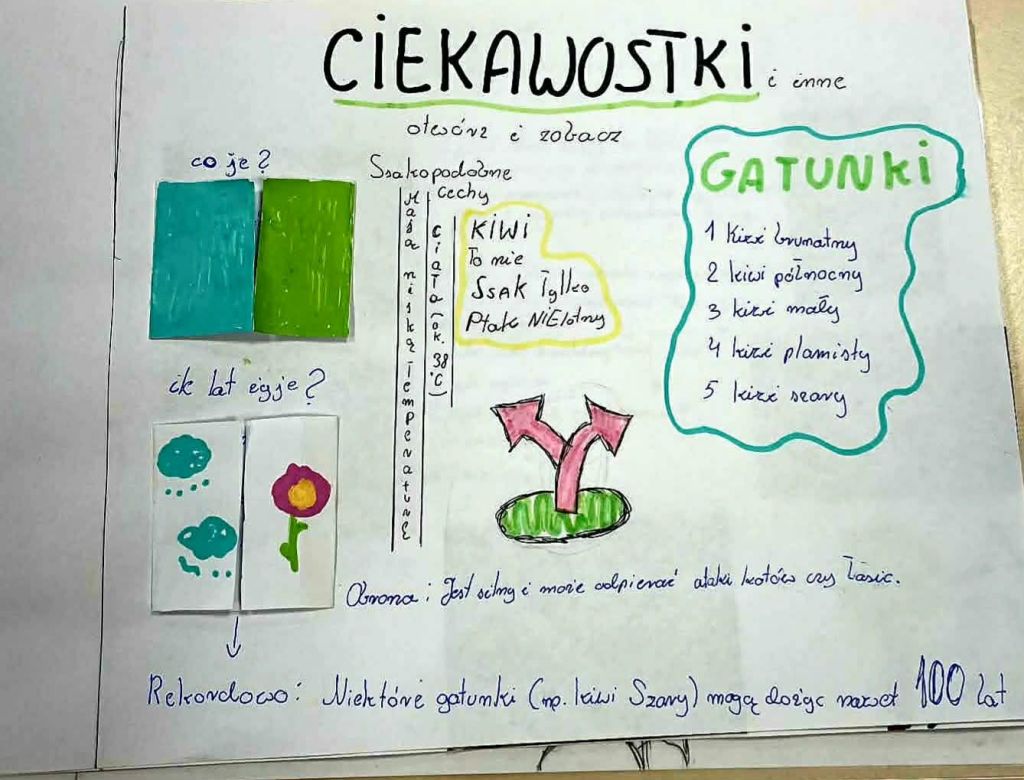 CIEKAWOSTKI i inne
otwórz i zobacz
co je?
ik lat żyje?
Ssakopodobne
cechy
Mają niską temperaturę
ciała (ok. 38°C)
KIWI
To nie
SSAK Tylko
Ptak NIElotny
GATUNKI
1 Kiwi brunatny
2 kiwi północny
3 kiwi mały
4 kiwi plamisty
5 kiwi szary
Obrona: Jest silny i może odpierać ataki kotów czy łasic.
Rekordowo: Niektóre gatunki (np. kiwi Szary) mogą dożyć nawet 100 lat